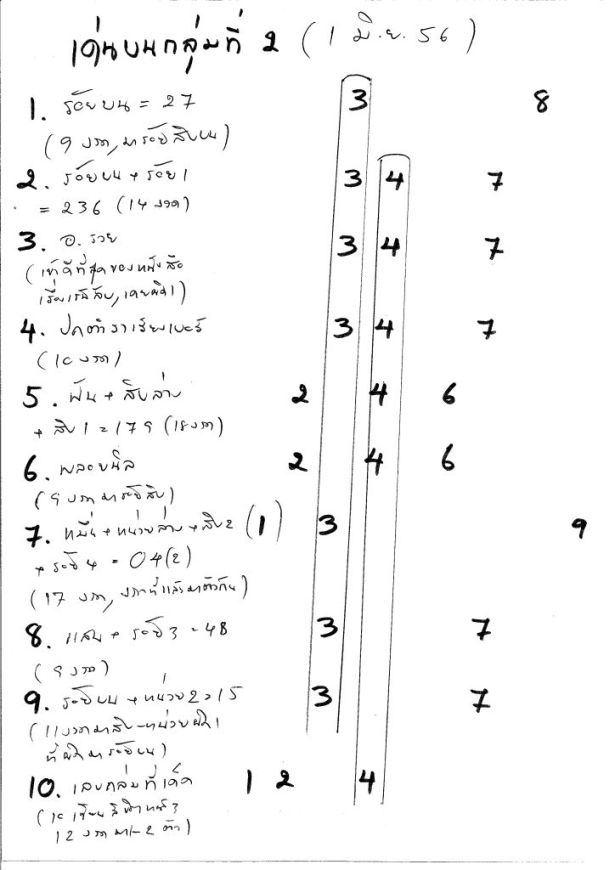 เด่นบนกลุ่มที่ 2 (1 มิ.ย. 56)
1. ร้อยบน = 27 3 8
(9 งวด, มาร้อยสิบบน)
2. ร้อยบน + ร้อย 1 3 4 7
= 236 (14 งวด)
3. อ. รวย 3 4 7
(เข้าดีที่สุดของหนังสือ
4. 3 4 7
(10 งวด)
5. พัน + สิบล่าง 2 4 6
+ สิบ 1 = 179 (18 งวด)
6. พลอยนิล 2 4 6
7. หมื่น + หน่วยล่าง + สิบ 2 (1) 3 9
+ ร้อย 4 = 04(2)
(17 งวด, งวดที่แล้วมาตัวกัน)
8. แสน + ร้อย 3 = 48 3 7
(9 งวด)
9. ร้อยบน + หน่วย 2 = 15 3 7
(11 งวดมาสิบ-หน่วย
ที่ผิดมาร้อยบน)
10. เลขกลุ่มที่เด็ด 1 2 4
12 งวด มา 1-2 ตัว)